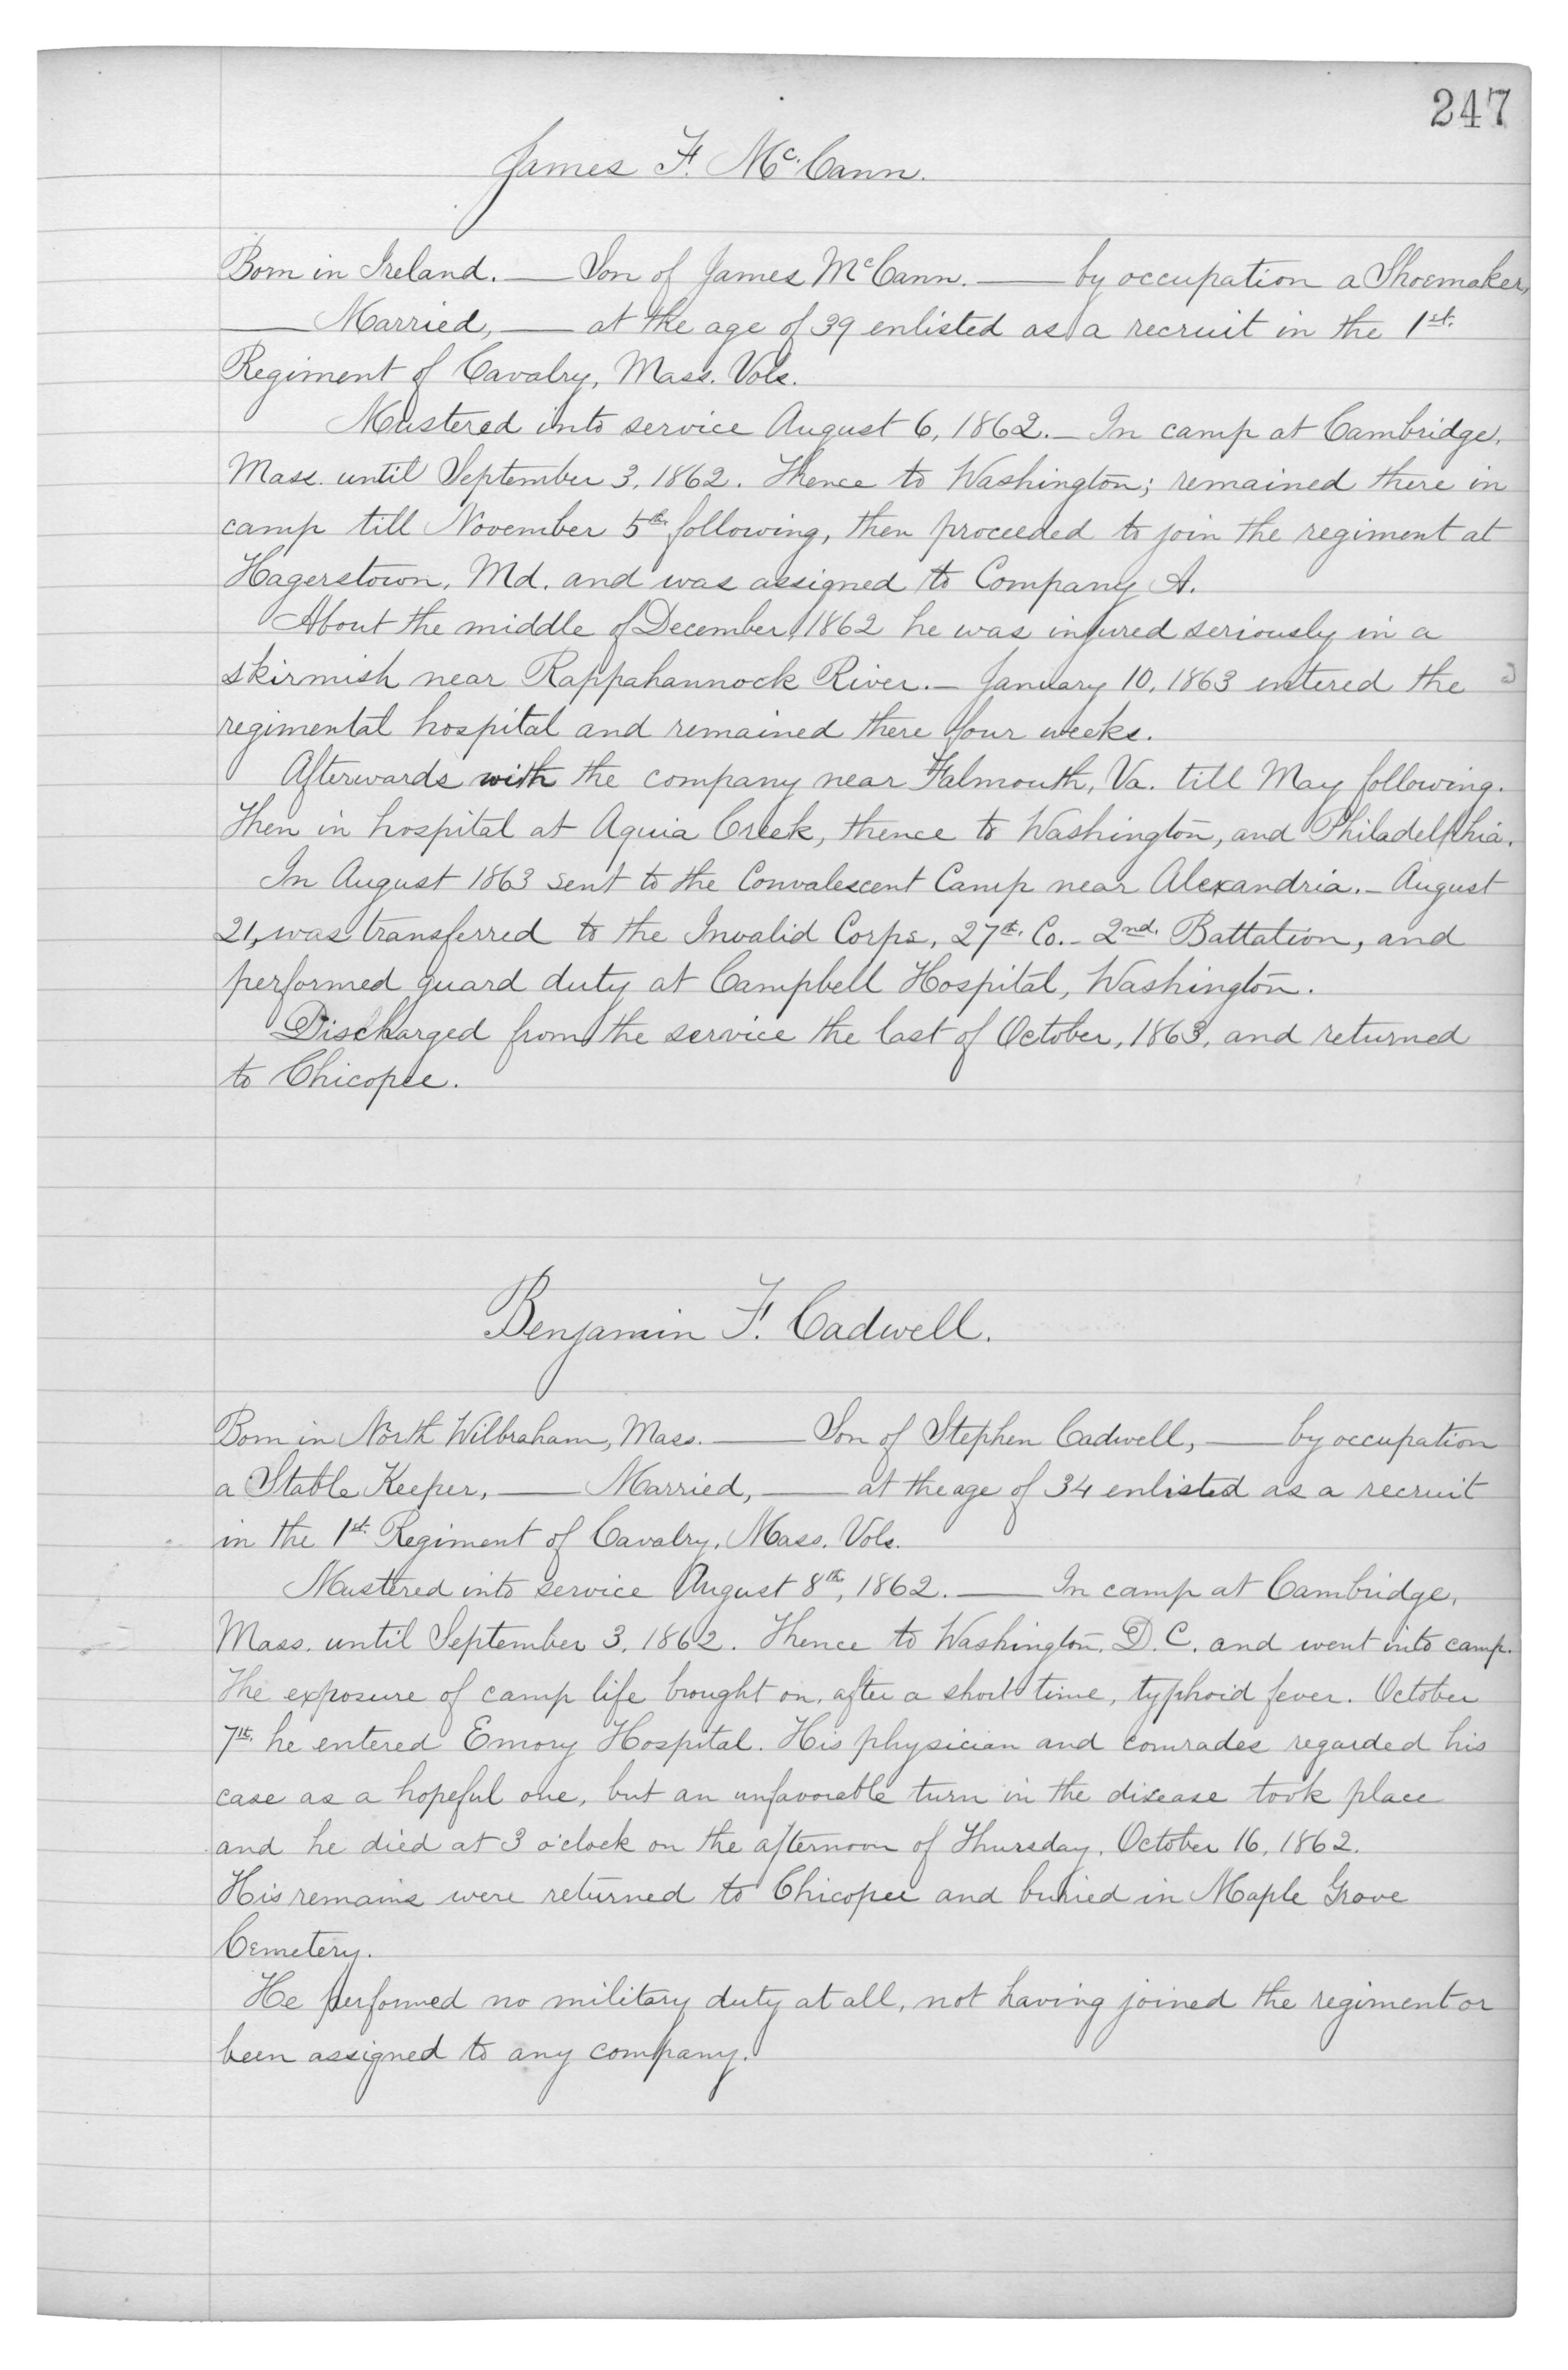 247
James F. McCann.
Born in Ireland. — Son of James McCann. — by occupation a Shoemaker,
— Married, — at the age of 39 enlisted as a recruit in the 1st.
Regiment of Cavalry, Mass. Vols.
Mustered into service August 6, 1862. – In camp at Cambridge,
Mass. until September 3, 1862. Thence to Washington; remained there in
camp till November 5th. following, then proceeded to join the regiment at
Hagerstown, Md. and was assigned to Company A.
About the middle of December, 1862 he was injured seriously in a
skirmish near Rappahannock River. – January 10, 1863 entered the
regimental hospital and remained there four weeks.
Afterwards with the company near Falmouth, Va. till May following.
Then in hospital at Aquia Creek, thence to Washington, and Philadelphia.
In August 1863 sent to the Convalescent Camp near Alexandria. – August
21, was transferred to the Invalid Corps, 27th. Co. – 2nd. Battation, and
performed guard duty at Campbell Hospital, Washington.
Discharged from the service the last of October, 1863, and returned
to Chicopee.
Benjamin F. Cadwell.
Born in North Wilbraham, Mass. — Son of Stephen Cadwell, — by occupation
a Stable Keeper, — Married, — at the age of 34 enlisted as a recruit
in the 1st. Regiment of Cavalry, Mass. Vols.
Mustered into service August 8th, 1862. — In camp at Cambridge,
Mass. until September 3, 1862. Thence to Washington, D.C. and went into camp.
The exposure of camp life brought on, after a short time, typhoid fever. October
7th. he entered Emory Hospital. His physician and comrades regarded his
case as a hopeful one, but an unfavorable turn in the disease took place
and he died at 3 o'clock on the afternoon of Thursday, October 16, 1862.
His remains were returned to Chicopee and buried in Maple Grove
Cemetery.
He performed no military duty at all, not having joined the regiment or
been assigned to any company.